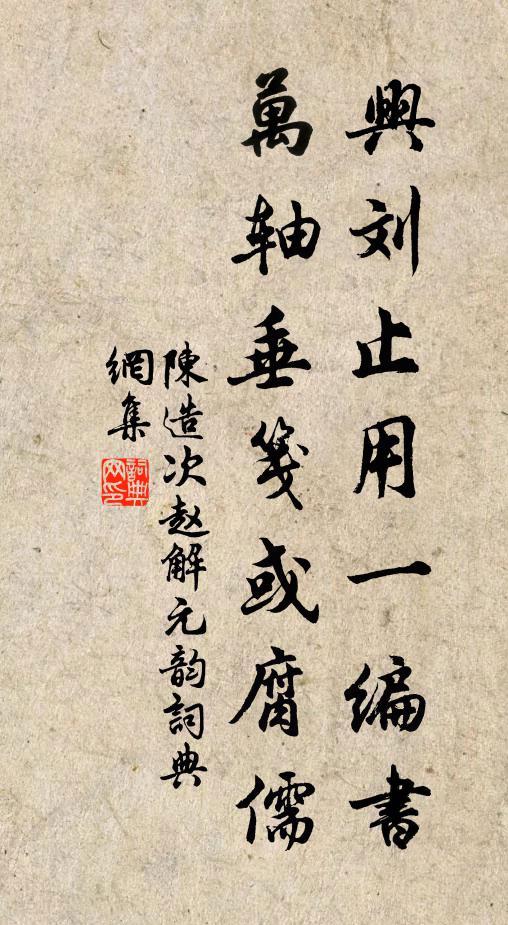 興刘止用一编書
萬轴垂笺或腐儒
陳造次赵解元韵詞典
網集
詞典
网印